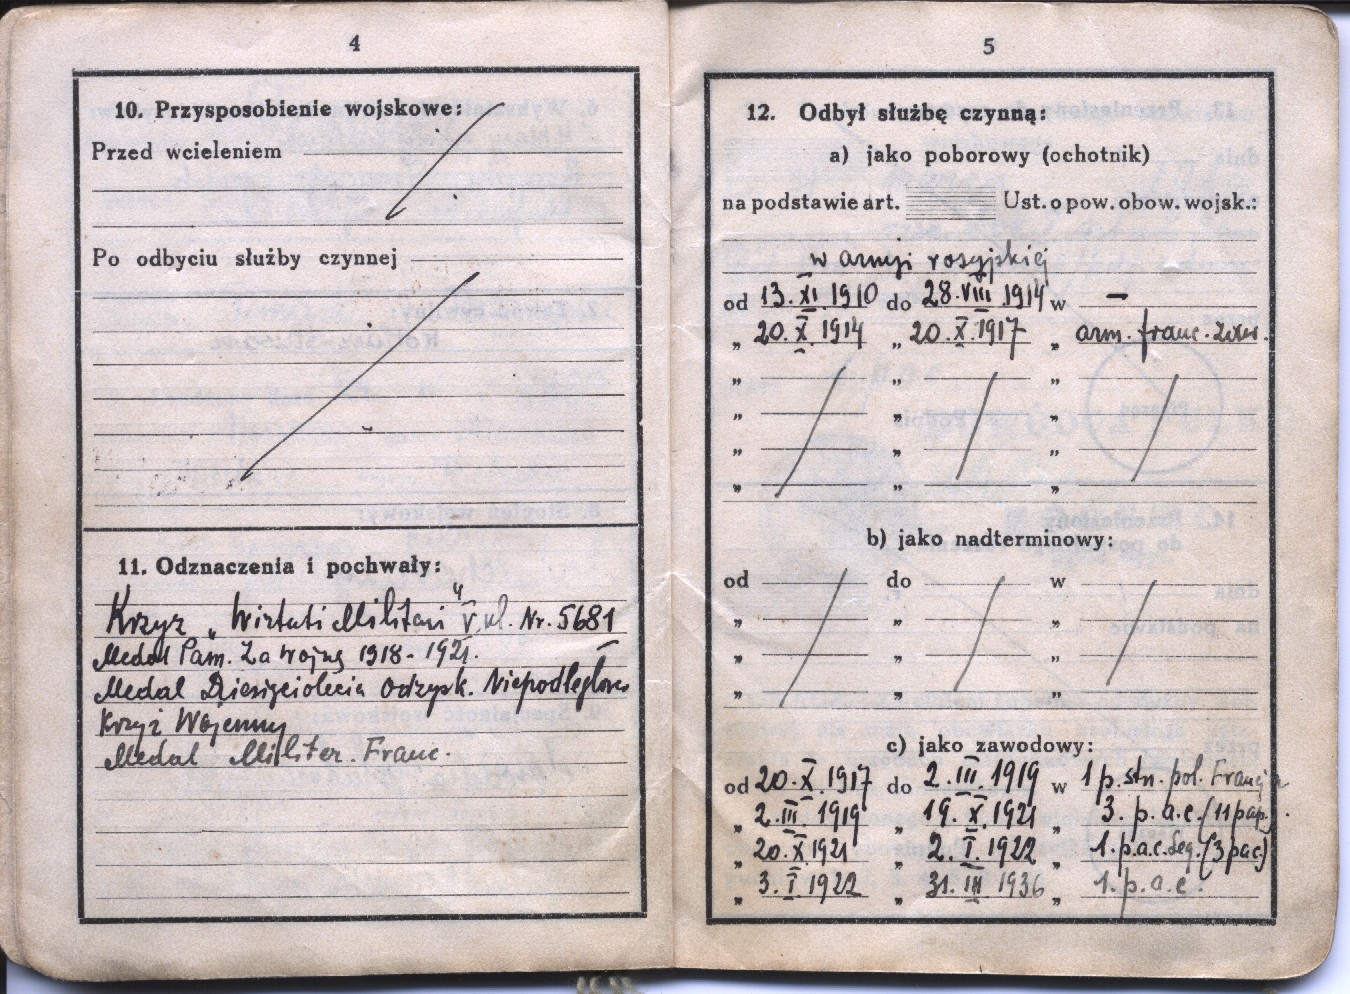 4
10. Przysposobienie wojskowe:
Przed wcieleniem
Po odbyciu służby czynnej
11. Odznaczenia i pochwały:
Krzyż „Wirtuti Militari" V. kl. Nr. 5681
Medal Pam. Za Wojnę 1918 - 1921.
Medal Dziesięciolecia Odzysk. Niepodległości
Krzyż Wojenny
Medal Militer. Franc.
5
12. Odbył służbę czynną:
a) jako poborowy (ochotnik)
na podstawie art. Ust. o pow. obow. wojsk.:
w armji rosyjskiej
od 13. XI 1910 do 28. VIII 1914 w —
„ 20. X. 1914 „ 20. X. 1917 „ arm. franc.
„ „ „
„ „ „
„ „ „
„ „ „
b) jako nadterminowy:
od do w
„ „ „
„ „ „
„ „ „
c) jako zawodowy:
od 20. X. 1917 do 2. III. 1919 w 1 p. pol. Francja
„ 2. III. 1919 „ 19. X. 1921 „ 3. p. a. c. (11 pap).
„ 20. X 1921 „ 2. I. 1922 „ 1. p.a.c. Leg. (3 pac)
„ 3. I. 1922 „ 31. III 1936 „ 1. p. a. c.